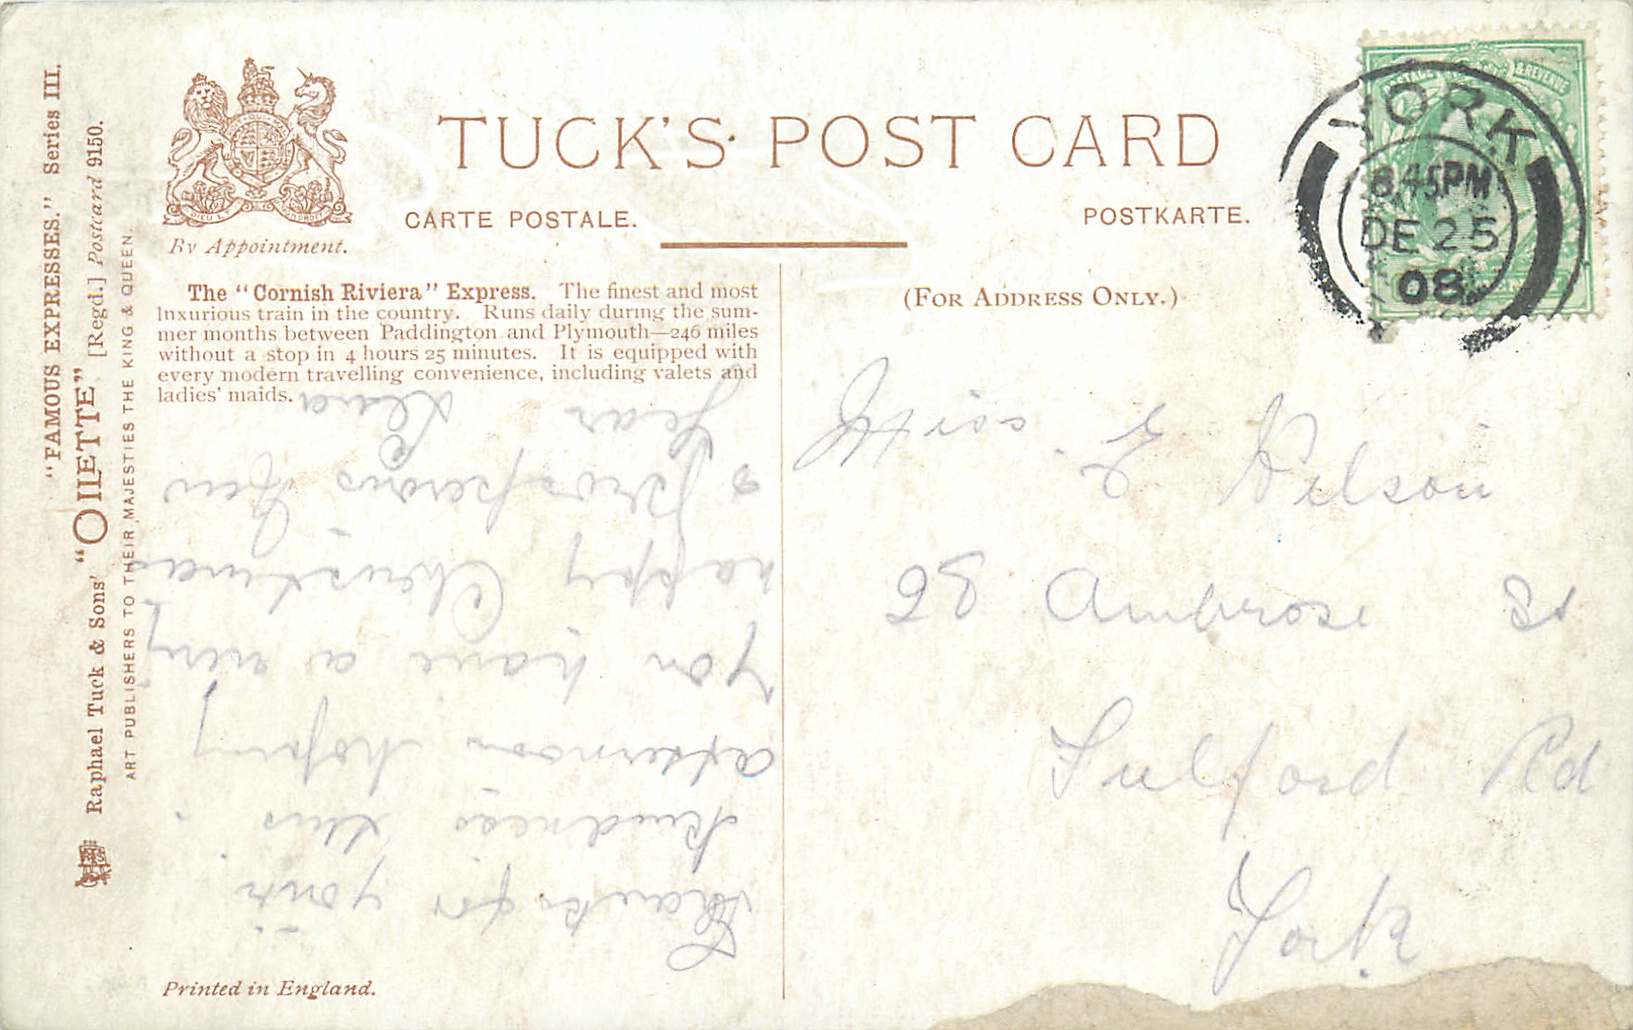 "FAMOUS EXPRESSES." Series III.
Raphael Tuck & Sons' "OILETTE" [Regd.] Postcard 9150.
ART PUBLISHERS TO THEIR MAJESTIES THE KING & QUEEN.
By Appointment.
TUCK'S POST CARD
CARTE POSTALE.
POSTKARTE.
The "Cornish Riviera" Express. The finest and most
luxurious train in the country. Runs daily during the sum-
mer months between Paddington and Plymouth—246 miles
without a stop in 4 hours 25 minutes. It is equipped with
every modern travelling convenience, including valets and
ladies' maids.
(FOR ADDRESS ONLY.)
POSTAGE & REVENUE
YORK
8.45PM
DE 25
08
Thanks for your
kindness this
afternoon hoping
you have a very
happy Christmas
& prosperous New
Year Clara
Miss. E
28 Ambrose St
Fulford Rd
York
Printed in England.